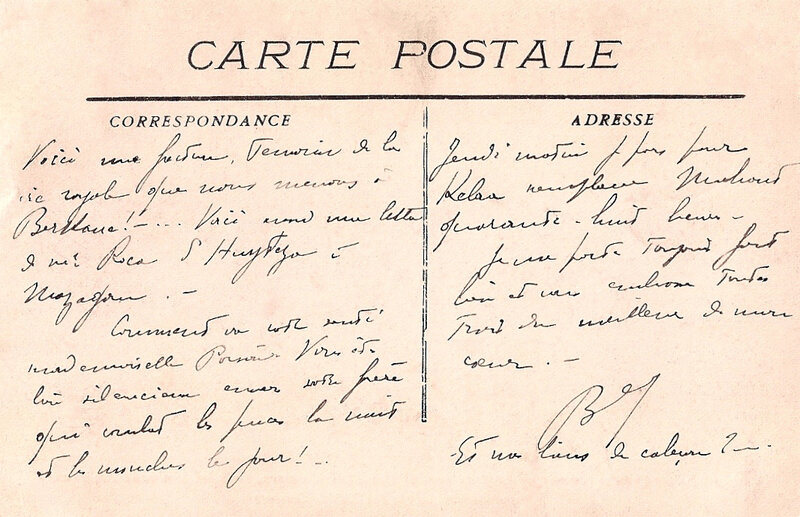 CARTE POSTALE
CORRESPONDANCE
Voici une facture, Témoin de la
vie royale que nous menons à
! - ... Voici aussi une lettre
de Roca d' à
Mazagan . -
Comment va votre santé
mademoiselle Vous êtes
bien silencieuse envers votre frère
qui combat les puces la nuit
et les mouches le jour ! ..
ADRESSE
Jeudi matin je pars pour
Kelaa remplacer
quarante-huit heures -
Je me porte toujours fort
bien et vous embrasse toutes
trois du meilleur de mon
cœur . -
Et nos de ? -